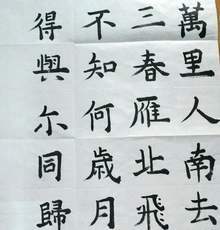 萬里人南去
三春雁北飛
不知何歲月
得與尒同歸